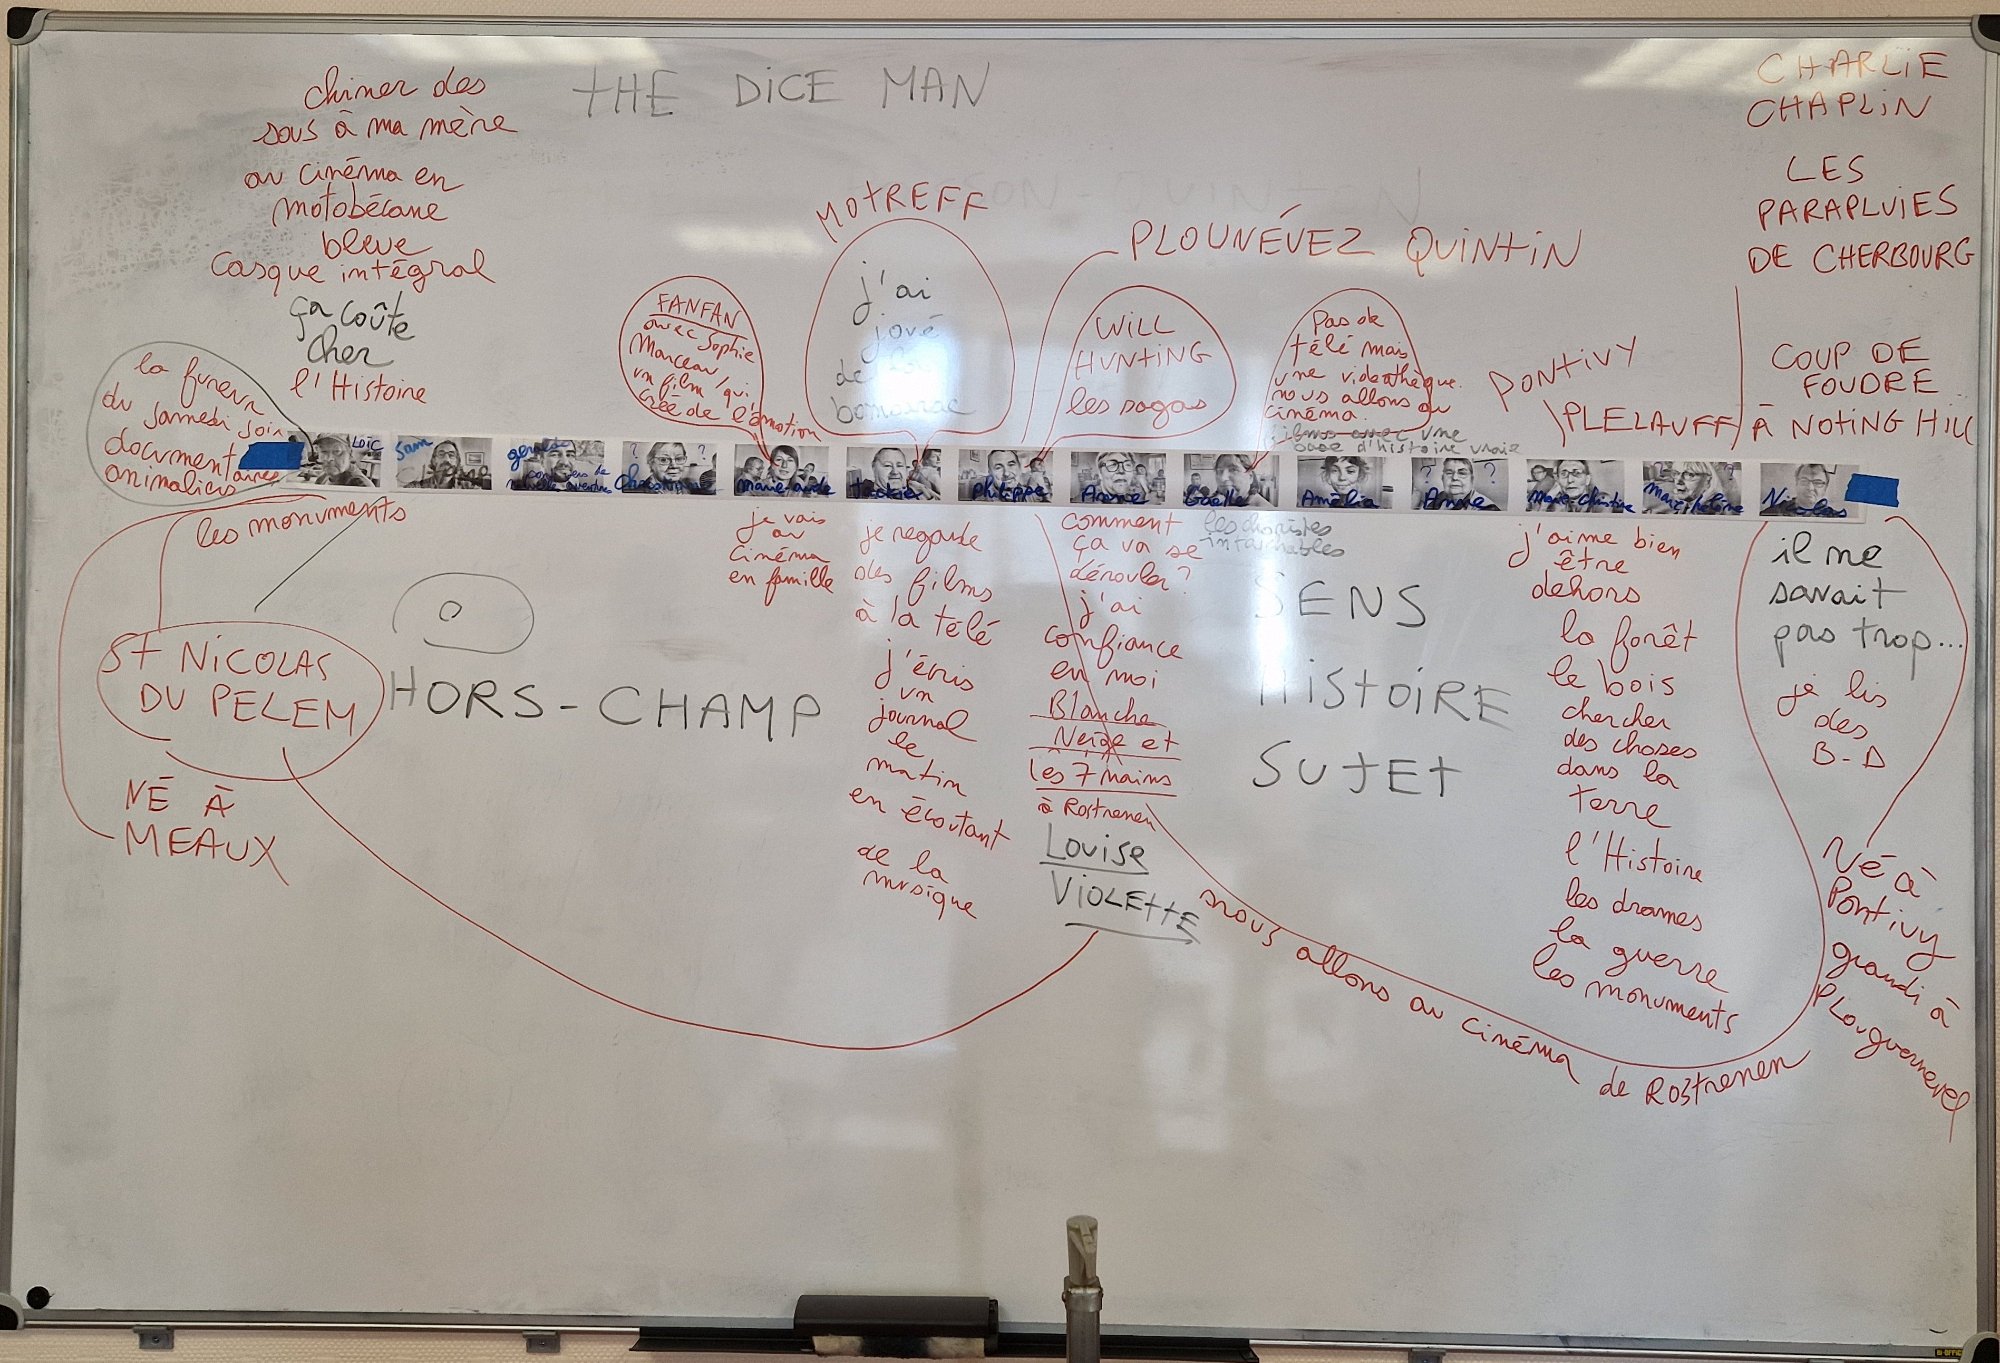 THE DICE MAN
CHARLIE
CHAPLIN
LES
PARAPLUIES
DE CHERBOURG
COUP DE
FOUDRE
À NOTING HILL
chiner des
sous à ma mère
au cinéma en
motobécane
bleue
casque intégral
ça coûte
cher
l'Histoire
la fureur
du samedi soir
documentaires
animaliers
MOTREFF
j'ai
joué
de
FANFAN
avec Sophie
Marceau, qui
un film
crée de l'émotion
PLOUNÉVEZ QUINTIN
WILL
HUNTING
les sagas
Pas de
télé mais
une vidéothèque.
nous allons au
cinéma.
films avec une
base d'histoire vraie
PONTIVY
PLELAUFF
Loïc
Sam
? ?
marie-aude
philippe
Gaëlle
Amélia
? ?
Anne
Marie-Christine
Nicolas
les monuments
ST NICOLAS
DU PELEM
NÉ À
MEAUX
HORS-CHAMP
je vais
au
cinéma
en famille
je regarde
des films
à la télé
j'écris
un
journal
le
matin
en écoutant
de la
musique
comment
ça va se
dérouler?
j'ai
confiance
en moi
Blanche
Neige et
les 7 nains
à Rostrenen
LOUISE
VIOLETTE
les choristes
intouchables
SENS
HISTOIRE
SUJET
j'aime bien
être
dehors
la forêt
le bois
chercher
des choses
dans la
terre
l'Histoire
les drames
la guerre
les monuments
il ne
savait
pas trop...
je lis
des
B-D
Né à
Pontivy
grandi à
PLouguernevel
nous allons au cinéma de ROStrenen